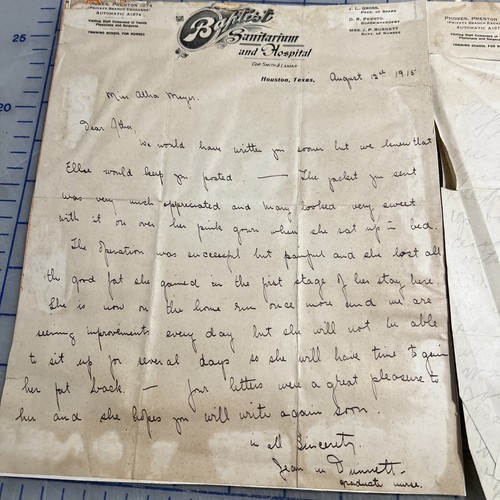 PHONES, PRESTON 1574
PRIVATE BRANCH EXCHANGE
AUTOMATIC A1574
TRAINING SCHOOL FOR NURSES
Baptist
Sanitarium
and Hospital
COR SMITH & LAMAR
Houston, Texas.
J. L. GROSS,
PRES. OF BOARD
D. R. PEVETO,
SUPERINTENDENT
MRS. J. P. BURNETT
SUPT. OF NURSES
August 12th 1915
Miss Altha Meyer.
Dear Altha,
We would have written you sooner but we knew that
Ellse would keep you posted — The jacket you sent
was very much appriciated and Mary looked very sweet
with it on over her pink gown when she sat up in bed.
The operation was successful but painful and she lost all
the good fat she gained in the first stage of her stay here
She is now on the home run once more and we are
seeing improvements every day but she will not be able
to sit up for several days so she will have time to gain
her fat back. — Your letters were a great pleasure to
her and she hopes you will write again soon.
in all Sincerety.
Jean
graduate nurse.
PHONES, PRESTON
PRIVATE BRANCH
AUTOMATIC A1574
TRAINING SCHOOL FOR
25
20